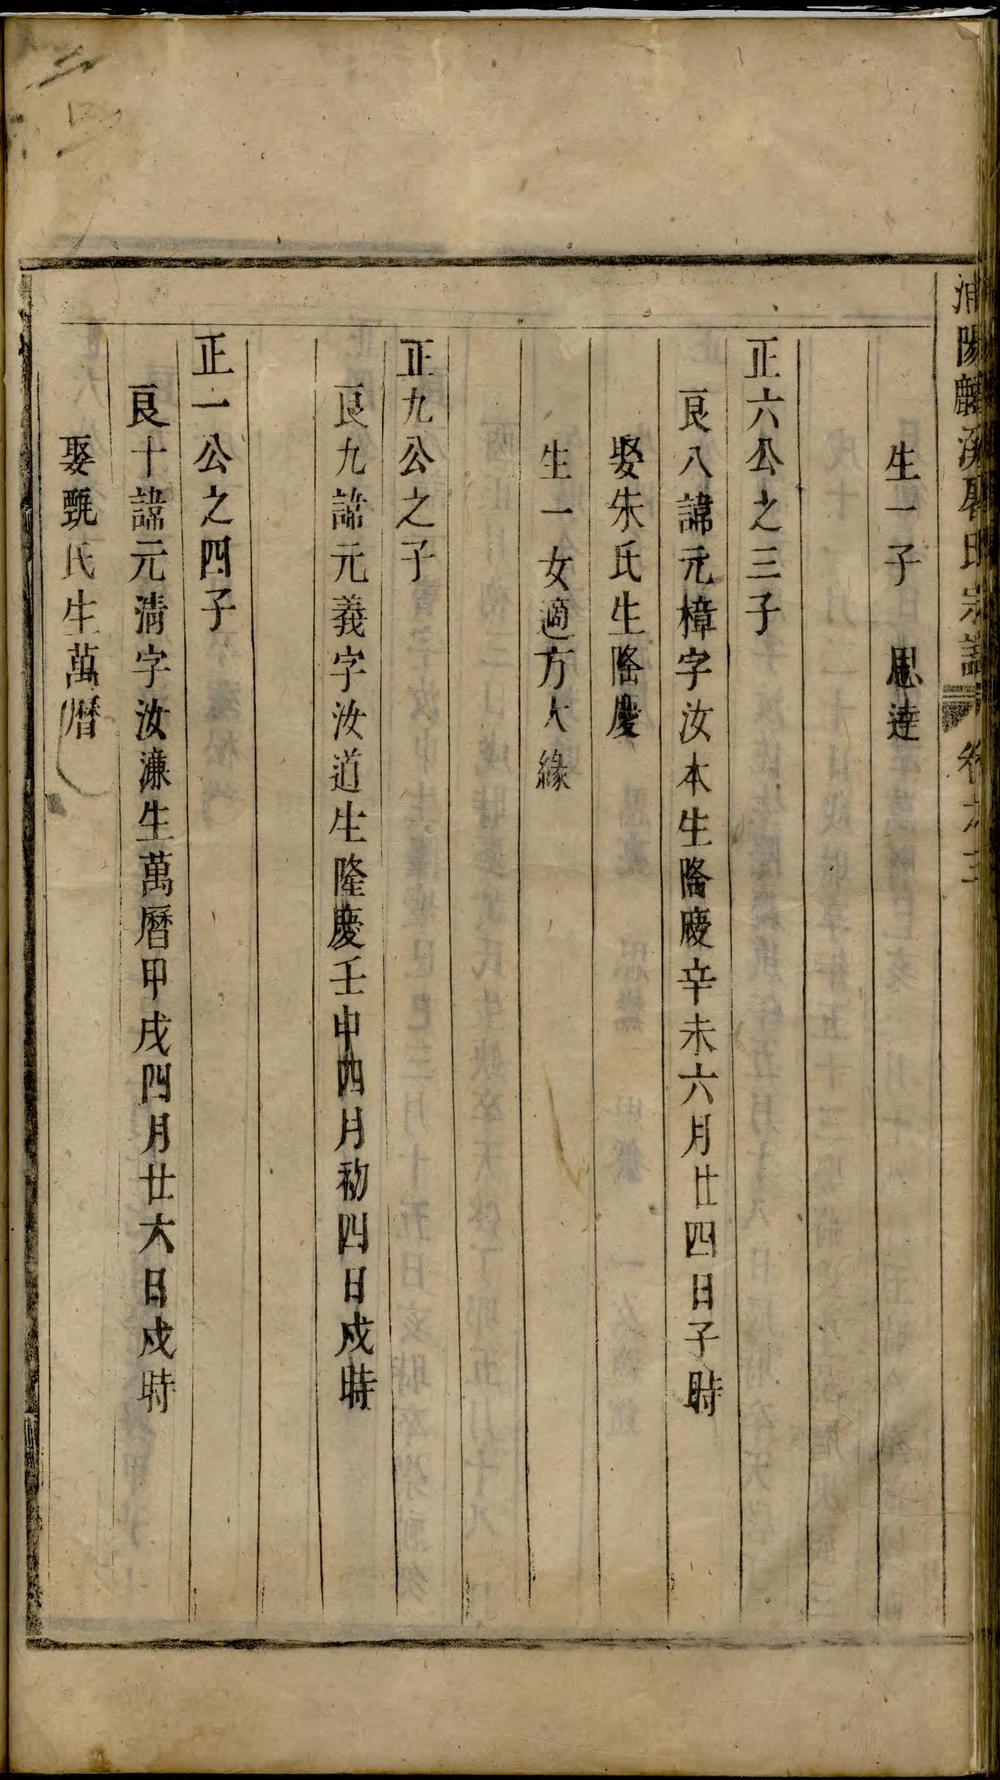 浦陽麟溪居氏宗譜 卷之三
生一子 思達
正六公之三子
良八諱元樟字汝本生隆慶辛未六月廿四日子時
娶朱氏生隆慶
生一女適方大緣
正九公之子
良九諱元義字汝道生隆慶壬申四月初四日戍時
正一公之四子
良十諱元淸字汝濂生萬曆甲戌四月廿六日戍時
娶甄氏生萬曆